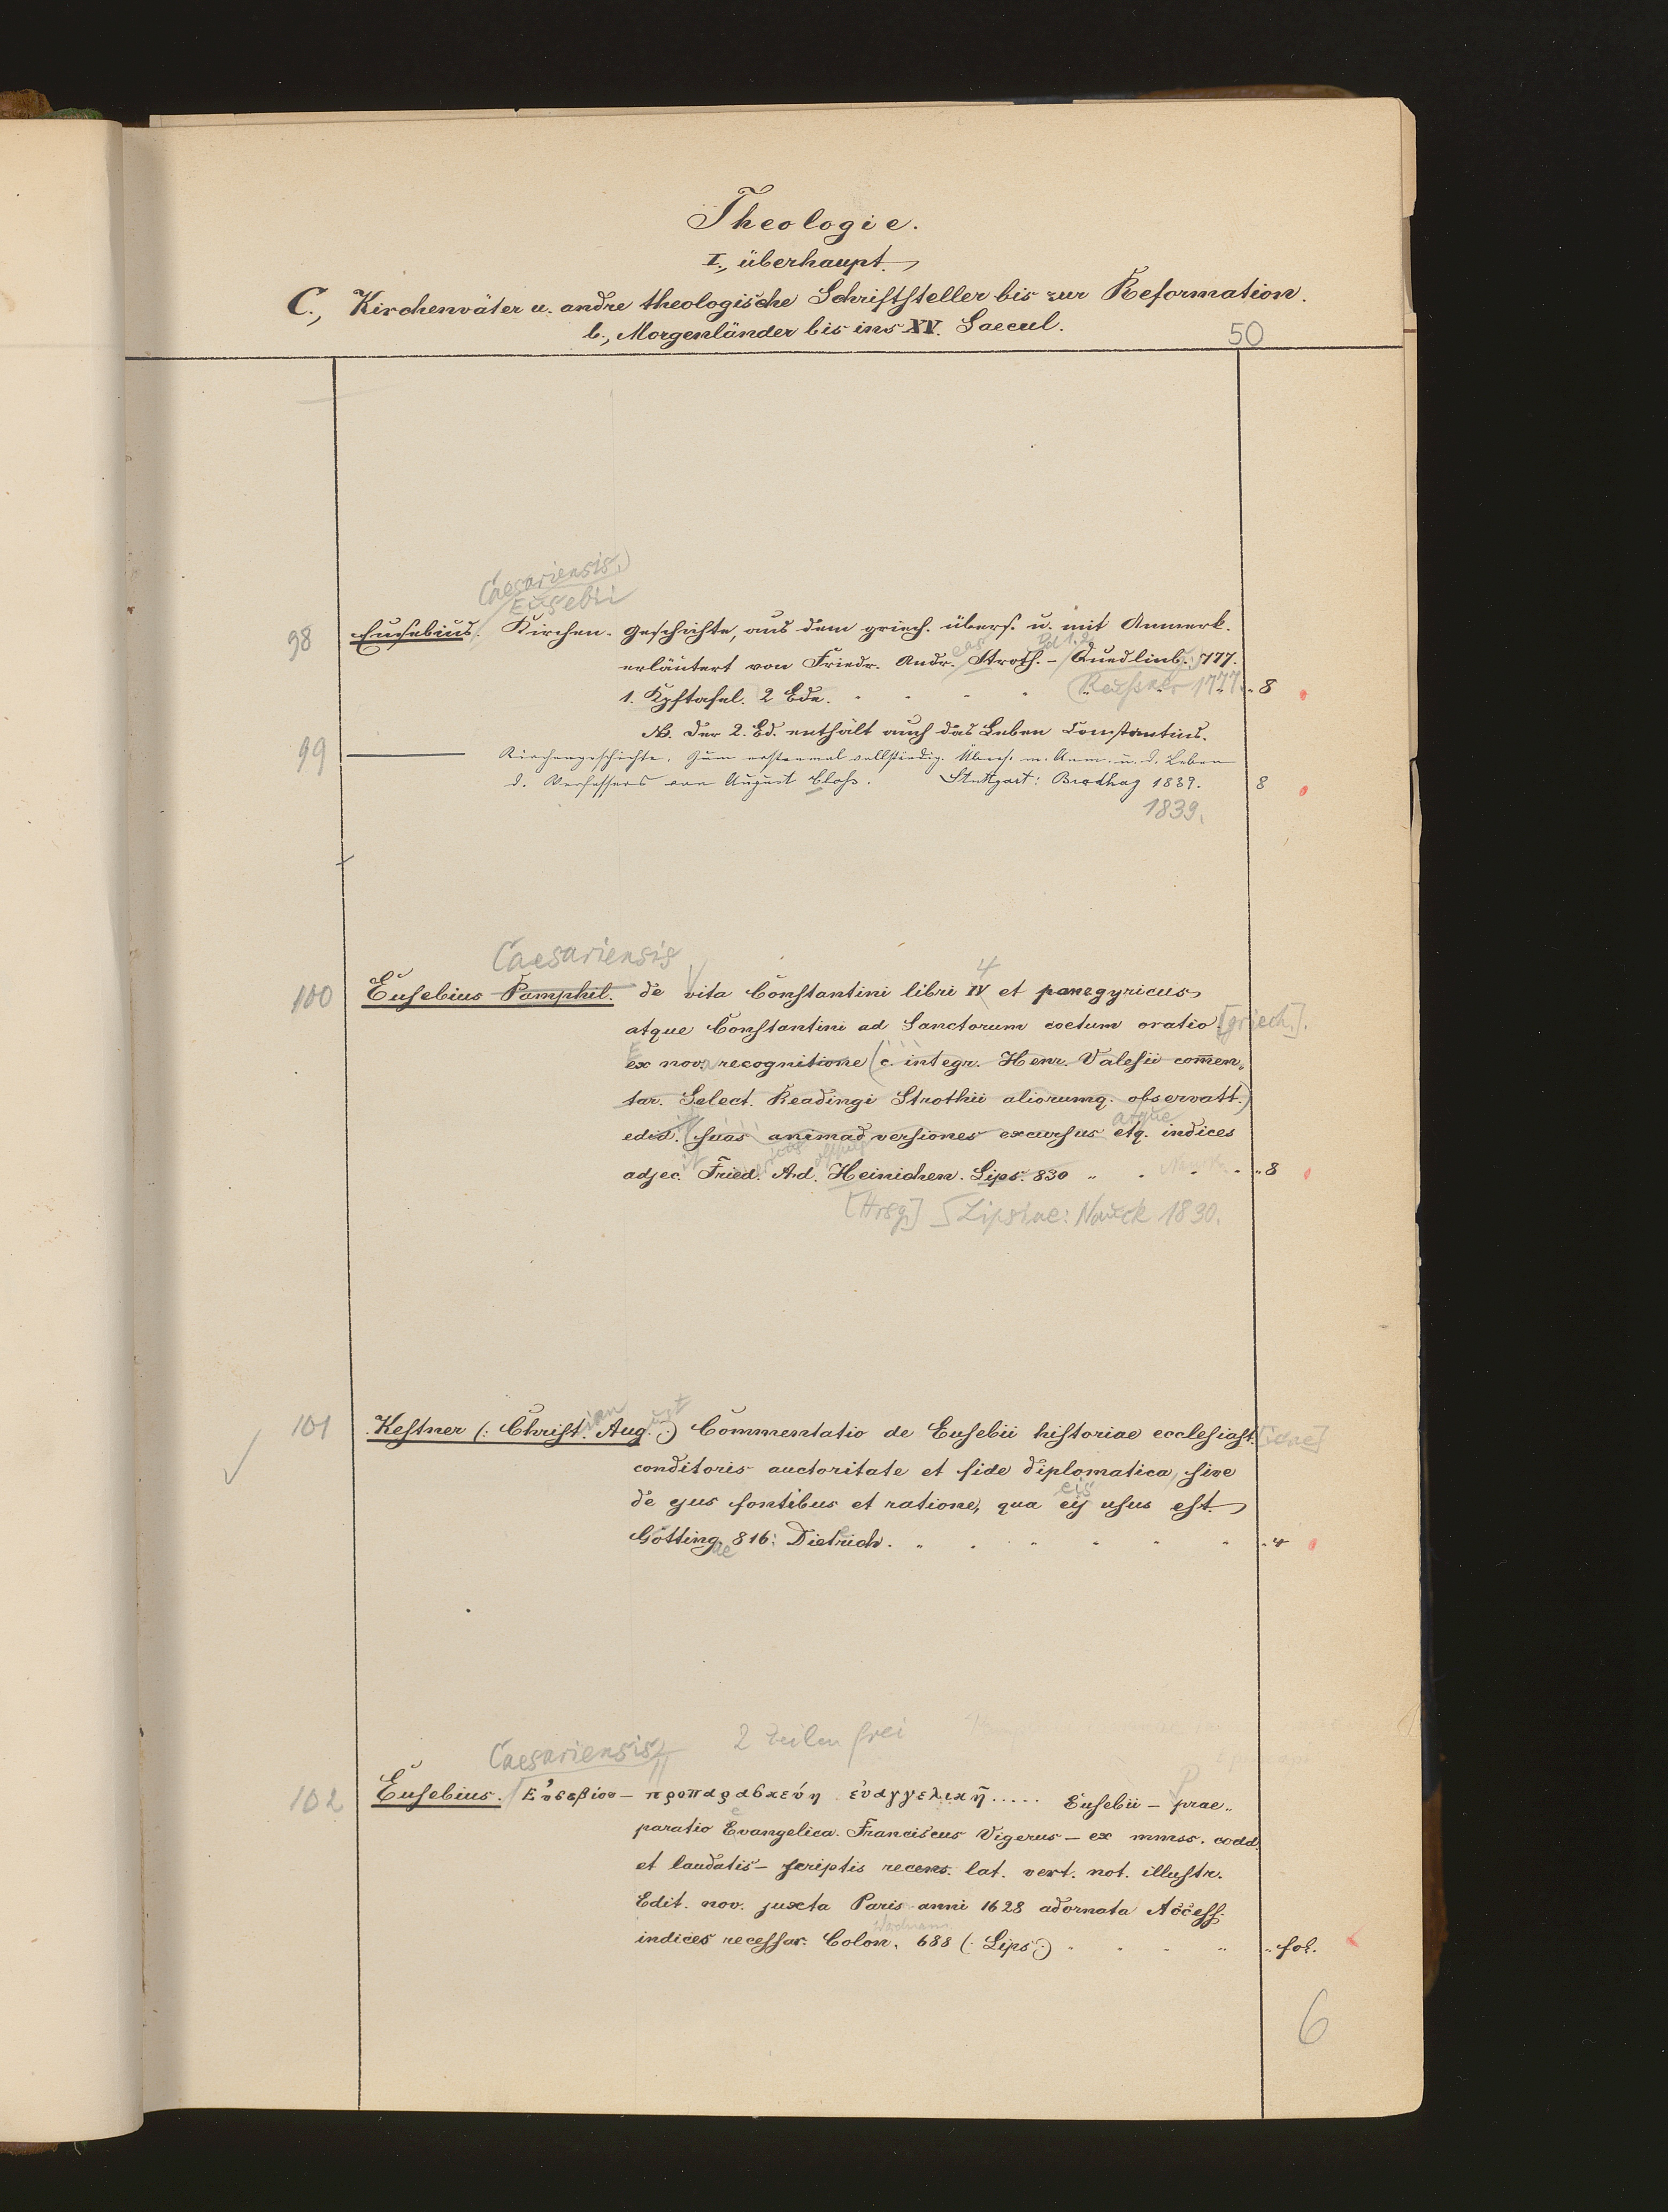 Theologie.
I., überhaupt.
C., Kirchenväter u. andre theologische Schriftsteller bis zur Reformation.
b., Morgenländer bis ins XV. Saecul.
50
Caesariensis,
Eusebii
98 Eusebius. Kirchen-Geschichte, aus dem griech. übers. u. mit Anmerk.
eas Bd 1.2.
erläutert von Friedr. Andr. Stroth. - Quedlinb. 777.
1. Kpftafel. 2 Bde. Reussner 1777. 8
NB. Der 2. Bd. enthält auch das Leben Constantins.
99 Kirchengeschichte. Zum erstenmal vollständig. Übers. m. Anm. u. d. Leben
d. Verfassers von August Closs. Stuttgart: Brodhag 1839. 8
1839.
Caesariensis 4
100 Eusebius Pamphil. de vita Constantini libri IV et panegyricus
atque Constantini ad Sanctorum coetum oratio [griech.].
ex nova recognitione (c. integr. Henr. Valesii com̄en-
tar. Select. Readingi Strothii aliorumq. observatt.)
edid. suas animadversiones excursus etq. indices
atque
adjec. Fried. Ad. Heinichen. Lips. 830 8
[Hrsg.] Lipsiae: Nauck 1830.
101 Kestner (: Christ. Aug. :) Commentatio de Eusebii historiae ecclesiast. [icae]
ian ust
conditoris auctoritate et fide diplomatica, sive
de ejus fontibus et ratione, qua eij usus est.
eis
Götting. 816: Dietrich. 4
ae
Caesariensis 2 Zeilen frei
102 Eusebius. Εὐσεβίου - προπαρασκεύη εὐαγγελικῆ..... Eusebii - prae-
P
paratio Evangelica. Franciscus Vigerus - ex mmss. codd.
et laudatis - scriptis recens. lat. vert. not. illustr.
Edit. nov. juxta Paris anni 1628 adornata Access.
indices necessar. Colon. 688 (: Lips :) fol.
6